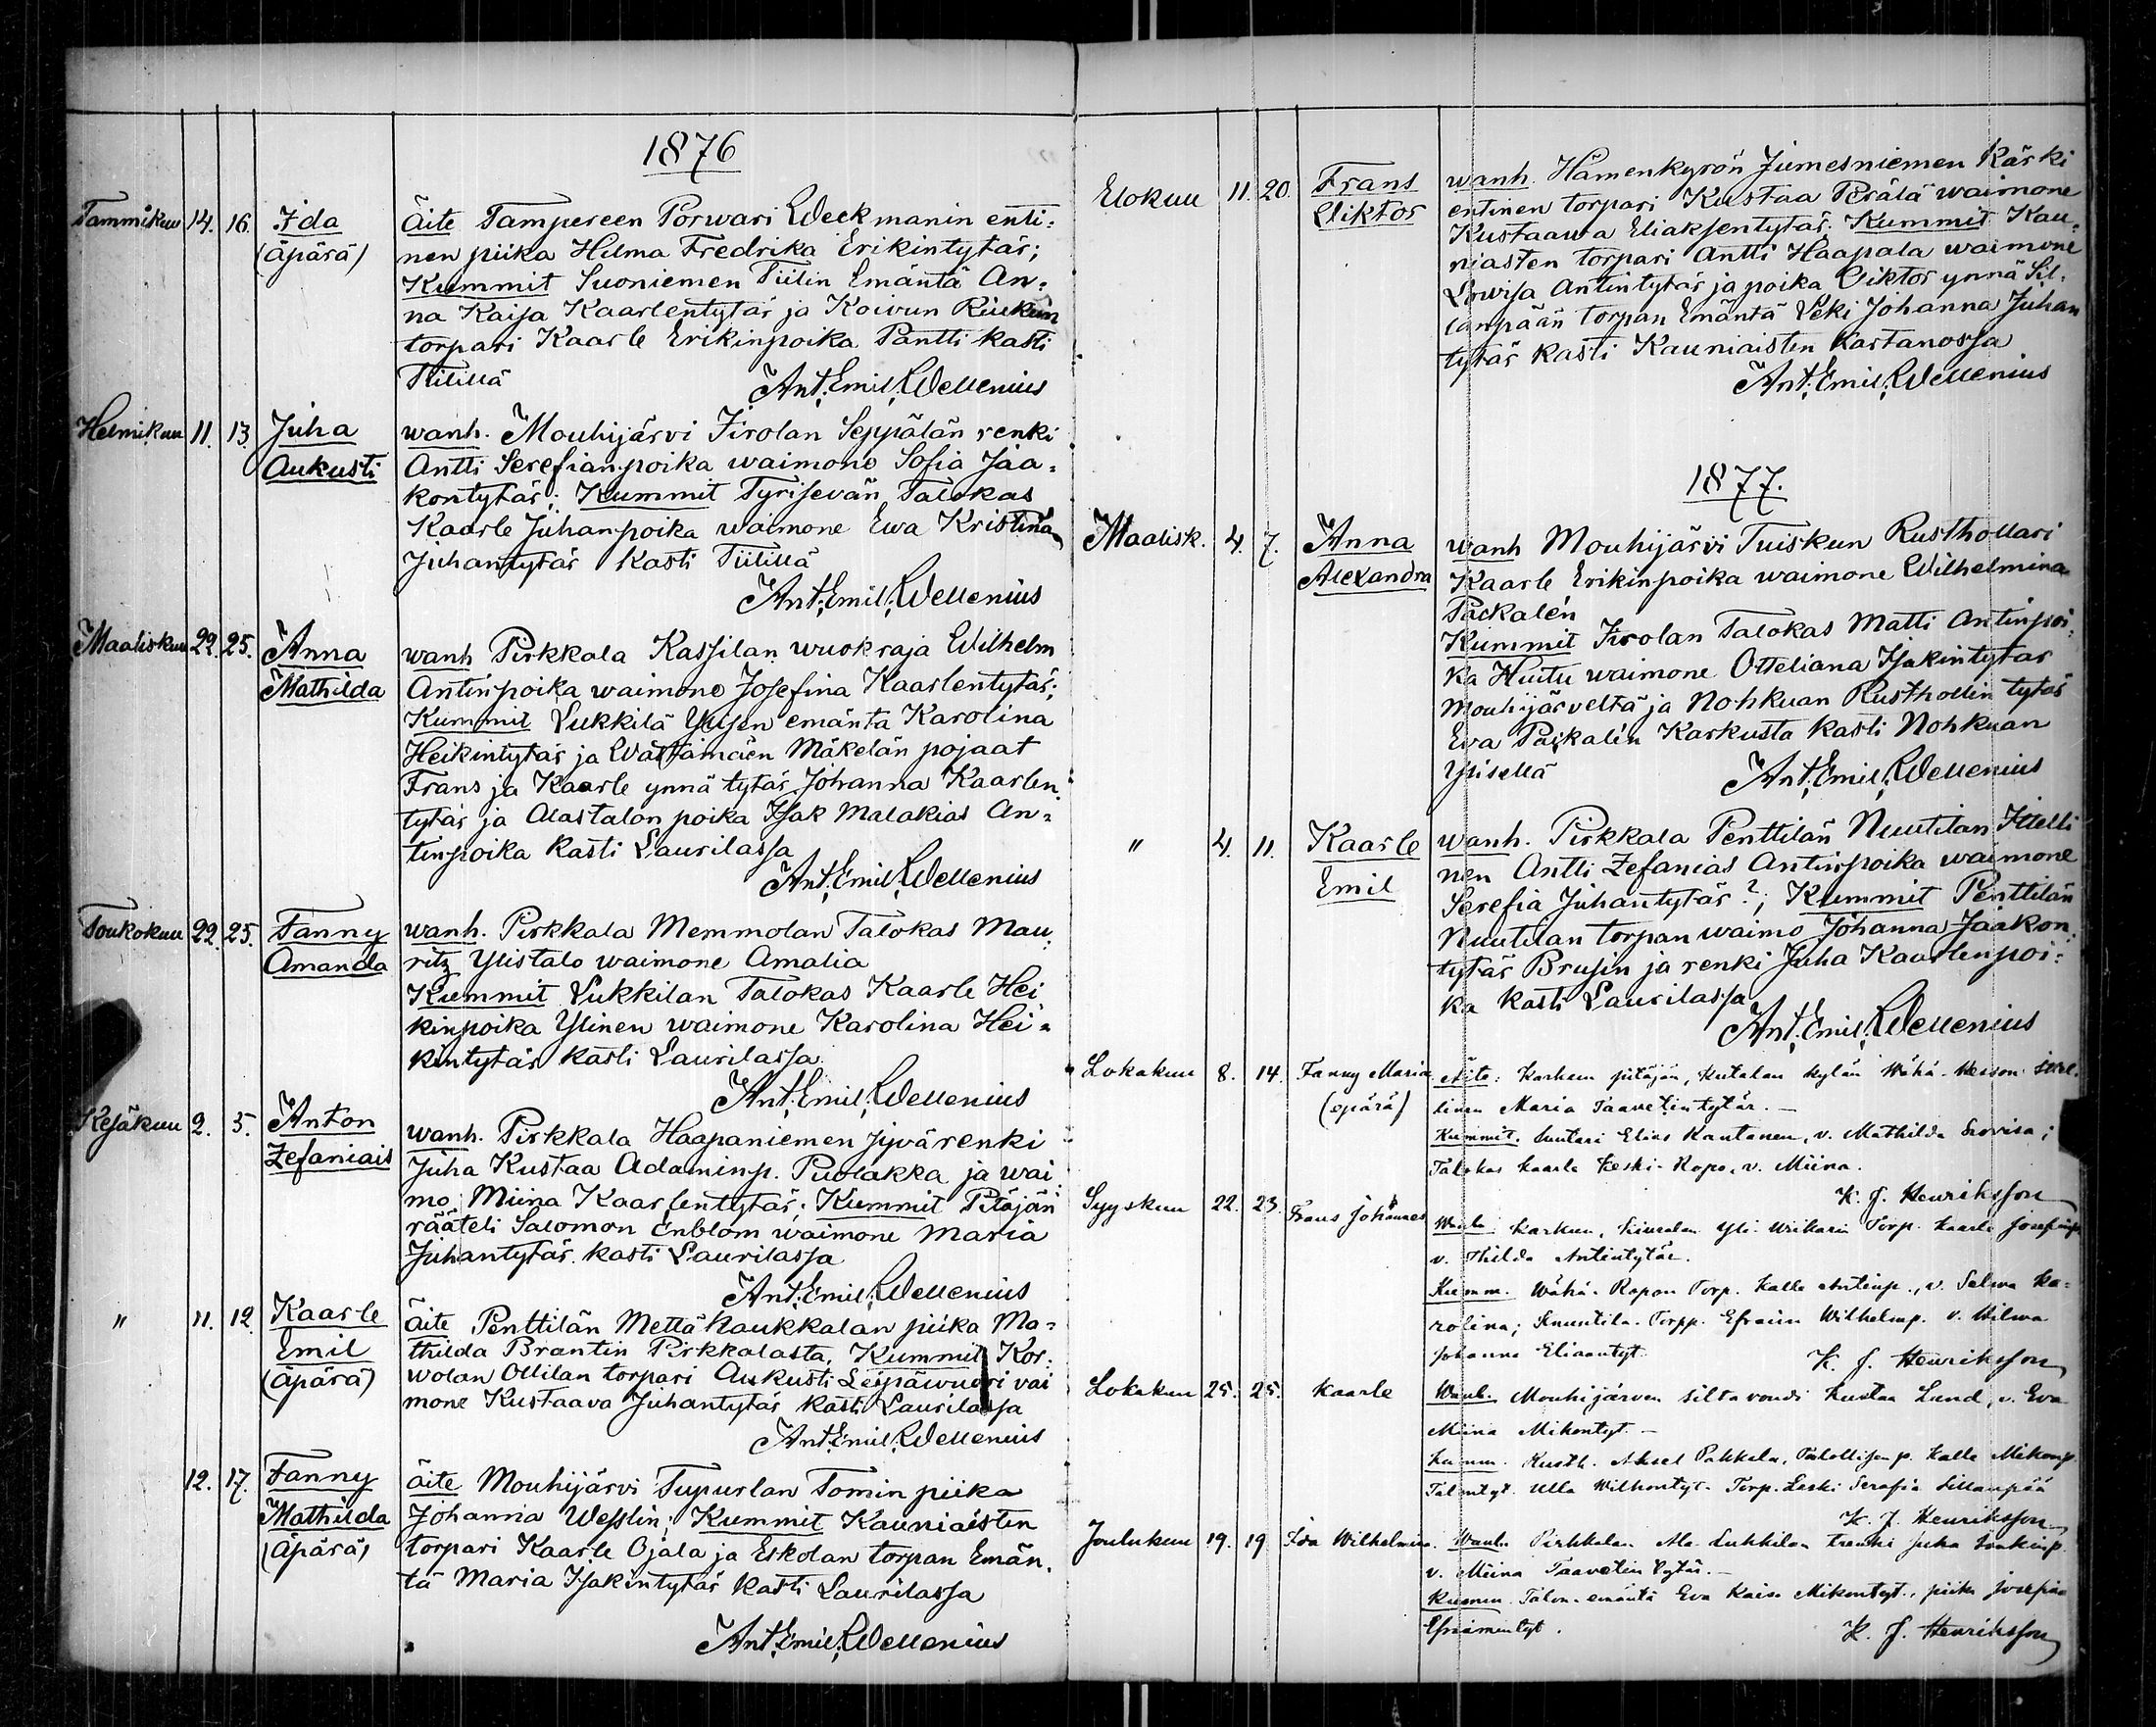 1876
Tammikuu 14. 16. Ida äite Tampereen Porwari Weckmanin enti=
(äpärä) nen piika Hilma Fredrika Erikintytär;
Kummit Suoniemen Tiilin Emäntä An=
na Kaisa Kaarlentytär ja Koivun
torpari Kaarle Erikinpoika Pantti kasti
Tiilillä
Ant. Emil. Wellenius
Helmikuu 11. 13. Juha wanh. Mouhijärvi Iirolan Seppälän renki
Aukusti Antti Serefianpoika waimone Sofia Jaa=
kontytär; Kummit Tyrisevän Talokas
Kaarle Juhanpoika waimone Ewa Kristina
Juhantytär kasti Tiilillä
Ant. Emil. Wellenius
Maaliskuu 22. 25. Anna wanh Pirkkala Kassilan wuokraja Wilhelm
Mathilda Antinpoika waimone Josefina Kaarlentytär;
Kummit Lukkilä emäntä Karolina
Heikintytär ja Mäkelän pojaat
Frans ja Kaarle ynnä tytär Johanna Kaarlen
tytär ja Alastalon poika Isak Malakias An=
tinpoika kasti Laurilassa
Ant. Emil. Wellenius
Toukokuu 22. 25. Fanny wanh. Pirkkala Memmolan Talokas Mau
Amanda ritz Ylistalo waimone Amalia
Kummit Lukkilan Talokas Kaarle Hei
kinpoika Ylinen waimone Karolina Hei=
kintytär kasti Laurilassa
Ant. Emil. Wellenius
Kesäkuu 2. 5. Anton wanh. Pirkkala Haapaniemen Jyvärenki
Zefaniais Juha Kustaa Adaminp. Puolakka ja wai
mo Miina Kaarlentytär; Kummit Pitäjän
rääteli Salomon Enblom waimone Maria
Juhantytär kasti Laurilassa
Ant. Emil. Wellenius
" 11. 12. Kaarle äite Penttilän Mettä Haukkalan piika Ma=
Emil thilda Brantin Pirkkalasta, Kummit Kor=
(äpärä) wolan Ollilan torpari Aukusti Leipäwuori vai
mone Kustaava Juhantytär kasti Laurilassa
Ant. Emil. Wellenius
12. 17. Fanny äite Mouhijärvi Tupurlan Tomin piika
Mathilda Johanna Wesslin; Kummit Kauniaisten
(äpärä) torpari Kaarle Ojala ja Eskolan torpan Emän
tä Maria Isakintytär kasti Laurilassa
Ant. Emil. Wellenius
Elokuu 11. 20. Frans wanh. Hämenkyrön Jumesniemen Kärki
Wiktor entinen torpari Kustaa Perälä waimone
Kustaawa Eliaksentytär. Kummit Kau
niasten torpari Antti Haapala waimone
Lowisa Antintytär ja poika Viktor ynnä Sil=
lanpään torpan Emäntä Leki Johanna Juhan
tytär kasti Kauniaisten kartanossa
Ant. Emil. Wellenius
1877.
Maalisk. 4. 7. Anna wanh Mouhijärvi Tuiskun Rusthollari
Alexandra Kaarle Erikinpoika waimone Wilhelmina
Päckalén
Kummit Iirolan Talokas Matti Antinpoi
ka Huitu waimone Otteliana Isakintytär
Mouhijärveltä ja Nohkuan Rusthollin tytär
Eva Päckalén Karkusta kasti Nohkuan
Ylisellä
Ant. Emil. Wellenius
" 4. 11. Kaarle wanh. Pirkkala Penttilän Nuutilan Itelli
Emil nen Antti Zefanias Antinpoika waimone
Serefia Juhantytär?; Kummit Penttilän
Nuutilan torpan waimo Johanna Jaakon
tytär Brusin ja renki Juha Kaarlenpoi=
ka kasti Laurilassa
Ant. Emil. Wellenius
Lokakuu 8. 14. Fanny Maria Äite: Karkun pitäjän, kylän Wähä-
(epärä) Maria Taavetintytär.
Kummit. Suutari Elias Kantanen, v. Mathilda Lovisa;
Talokas Kaarle Keski-Ropo, v. Miina.
K. J. Henriksson
Syyskuu 22. 23. Frans Johannes Wanh. Karkun, Yli Torp. Kaarle Josefinp.
v. Hilda Antintytär.
Kumm. Wähä-Ropon Torp. Kalle Antinp., v. Selma Ka=
rolina; Knuutila Torpp. Efraim Wilhelmp. v. Hilma
Johanna Eliaantyt.
K. J. Henriksson
Lokakuu 25. 25. Kaarle Wanh. Mouhijärven siltavouti Kustaa Lund, v. Eva
Miina Mikontyt.
Kumm. Rusth. Aksel Pakkala, p. Kalle Mikonp.
Ulla Wilhontyt. Torp. Leski Serafia Sillanpää
K. J. Henriksson
Joulukuu 19. 19 Ida Wilhelmina. Wanh. Pirkkalan Ala-Lukkilan renki Juha
v. Miina Taavetin tytär.
Kumm. Talon-emäntä Eva Kaisa Mikontyt., piika Josefina
Efraimintyt.
K. J. Henriksson